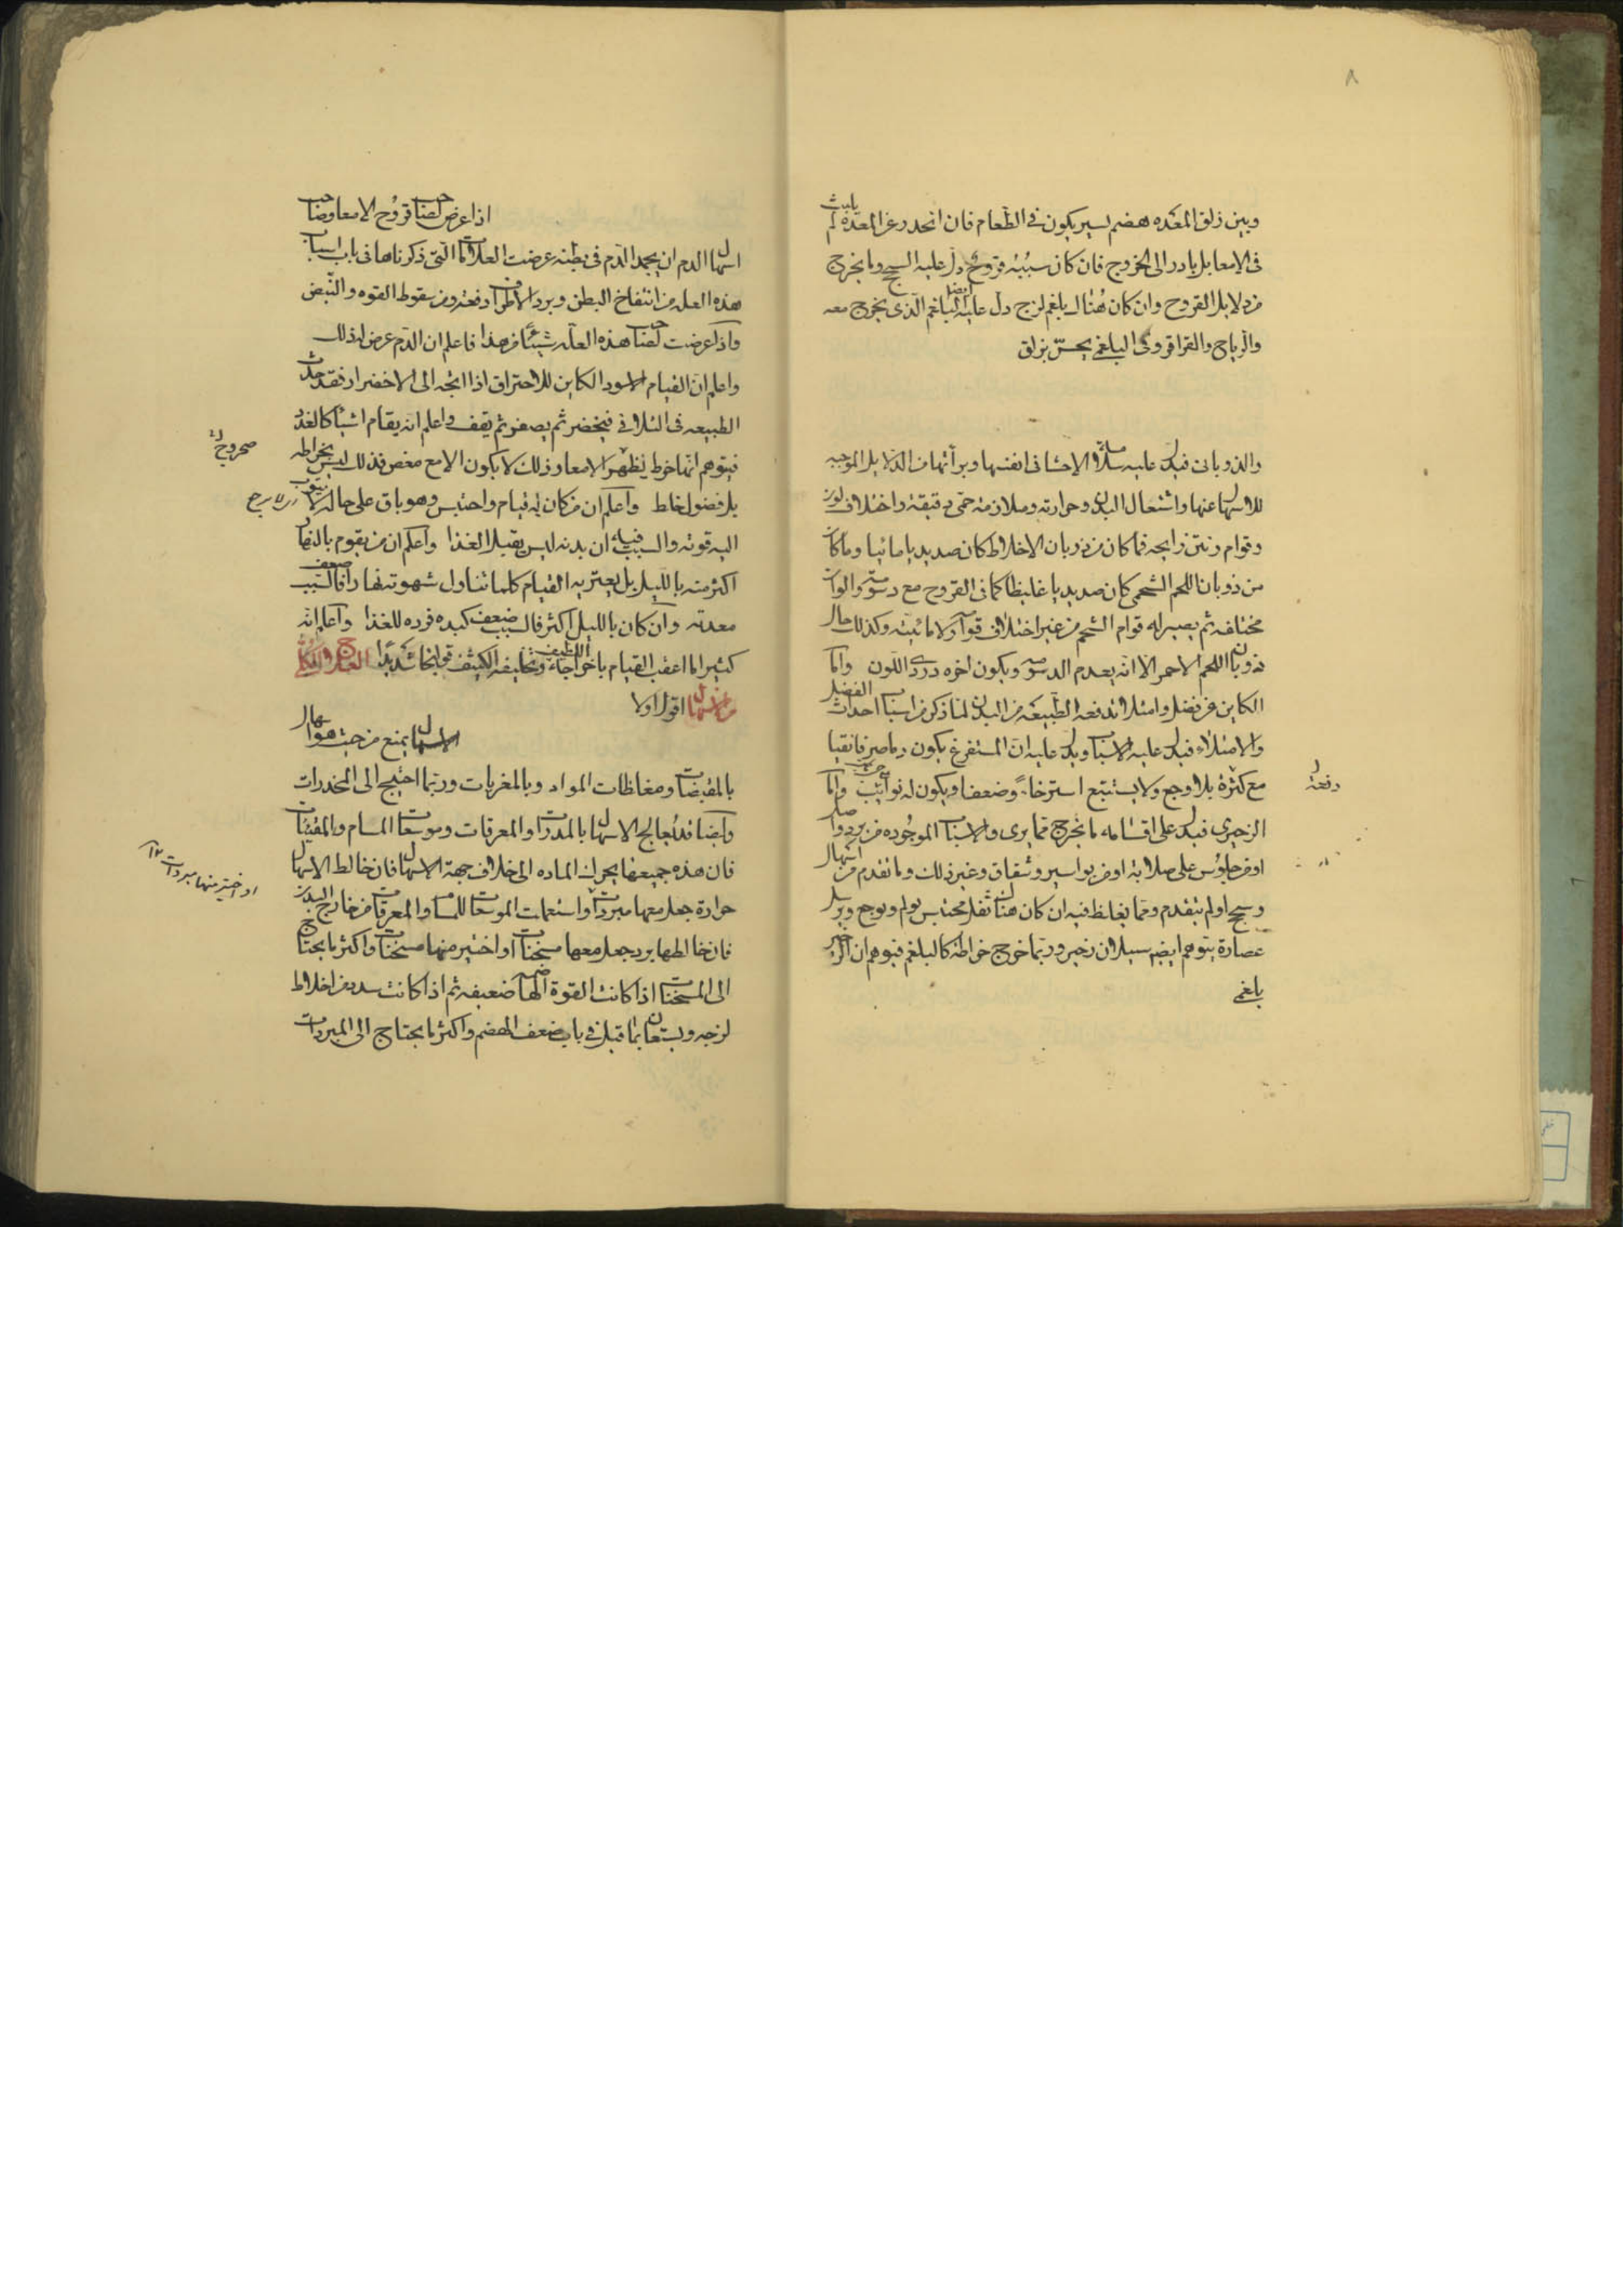 ٨
وبين زلق المعده هضم يسير يكون فى الطعام فان انحدر عن المعده لم يلبث
فى الامعا بل بادر الى الخروج فان كان سببه قروح دل عليه السحج وما يخرج
من دلايل القروح وان كان هناك بلغم لزج دل عليه ايضا البلغم الذى يخرج معه
والرياح والقراقر وفى البلغمى يحس بزلق
والذوبانى فيدل عليه سلامة الاحشا فى انفسها وبرأتها من الدلايل الموجبه
للاسهال عنها واشتعال البدن وحرارته وملازمة حمى دقيقة واختلاف لون
وقوام ونتن رايحه فما كان من ذوبان الاخلاط كان صديديا مائيا وما كان
من ذوبان اللحم الشحمى كان صديديا غليظا كما فى القروح مع دسومة والوان
مختلفه ثم يصير له قوام الشحم من غير اختلاف قوام ولا مائيته وكذلك حال
ذوبان اللحم الاحمر الا انه يعدم الدسومة ويكون اخره دردى اللون واما
الكاين عن فضل وامتلا تدفعه الطبيعه من البدن لما ذكر من اسباب احداث الفضل
والامتلاء فيدل عليه الاسباب ويدل عليه ان المستفرغ يكون دما صرفا نقيا
مع كثرة بلا وجع ولا يستتبع استرخاء وضعفا ويكون له نوائب واما
دفعة
الزحيرى فيدل على اقسامه ما يخرج مما يرى والاسباب الموجوده من برد واصل
او من جلوس على صلابة او من بواسير وشقاق وغير ذلك وما تقدم من اسهال
وسحج او لم يتقدم ومما يغلظ فيه ان كان هناك ثفل محتبس يولم ويوجع ويرسل
عصارة يتوهم سيلان زحير وربما خرج خراطة كالبلغم فيوهم ان الزحير
بلغمى
اذا عرض لصاحب قروح الامعا وصاحب
اسهال الدم ان يجمد الدم فى بطنه عرضت العلامات التى ذكرناها فى باب اسباب
هذه العله من انتفاخ البطن وبرد الاطراف دفعة ومن سقوط القوه والنبض
واذا عرضت لصاحب هذه العله شيئا من هذا فاعلم ان الدم عرض له ذلك
واعلم ان القيام الاسود الكاين للاحتراق اذا اتجه الى الاخضرار فقد حدث
الطبيعه فى التلافى فيخضر ثم يصفو ثم يقف واعلم انه يقام اشيا كالغدد
فيتوهم انها خوط لظهر الامعا وذلك لا يكون الا مع مغص فذلك ليس بخراطه
بل فضول خلط واعلم ان من كان به قيام واحتبس وهو باق على حاله لا يثوب
اليه قوته والسبب فيه ان بدنه ليس يقبل الغذا واعلم ان من يقوم بالنهار
اكثر منه بالليل بل يعتريه القيام كلما تناول شهوته نهارا فالسبب ضعف
معدته وان كان بالليل اكثر فالسبب ضعف كبده فرده للغذا واعلم انه
كثيرا ما اعقب القيام باخراجه اللطيف وتخليفه الكثيف قولنجا شديدا العلاج الكلى
من الاسهال اقول اولا
الاسهال يمنع من حيث هو اسهال
بالمقبضات ومغلظات المواد وبالمغريات وربما احتيج الى المخدرات
وايضا قد يعالج الاسهال بالمدرات والمعرقات وموسعات المسام والمقيئات
فان هذه جميعها يحرك الماده الى خلاف جهة الاسهال فان خالط الاسهال
حرارة جعل معها مبردات واستعملت الموسعات للمسام والمعرقات من خارج البدن
او اختير منها مبردات
فان خالطها برد جعل معها مسخنات او اختير منها مسخنات واكثر ما يحتاج
الى المسخنات اذا كانت القوة الهاضمة ضعيفه ثم اذا كانت سدد من اخلاط
لزجه ويستعان بما قيل فى باب ضعف الهضم واكثر ما يحتاج الى المبردات